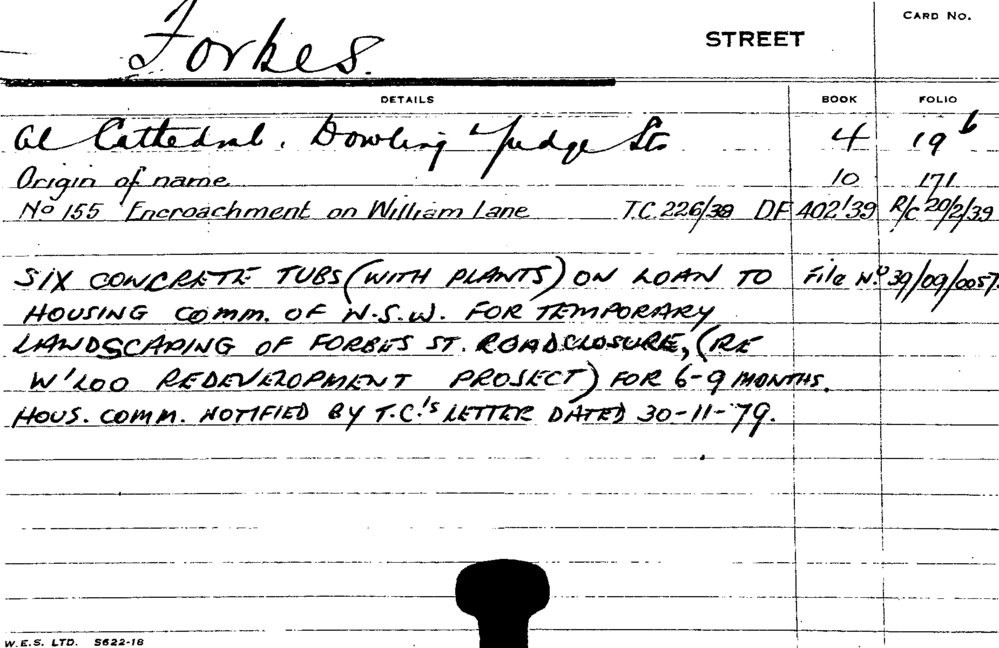 Forbes. STREET CARD NO.
DETAILS BOOK FOLIO
al Cathedral, Dowling & Judge Sts 4 19b
Origin of name 10 171
No 155 Encroachment on William Lane T.C. 226/39 DF 402'39 R/C 20/2/39
SIX CONCRETE TUBS (WITH PLANTS) ON LOAN TO File No. 39/09/0057.
HOUSING COMM. OF N.S.W. FOR TEMPORARY
LANDSCAPING OF FORBES ST. ROADCLOSURE, (RE
W'LOO REDEVELOPMENT PROJECT) FOR 6-9 MONTHS.
HOUS. COMM. NOTIFIED BY T.C.'s LETTER DATED 30-11-'79.
W.E.S. LTD. S622-18